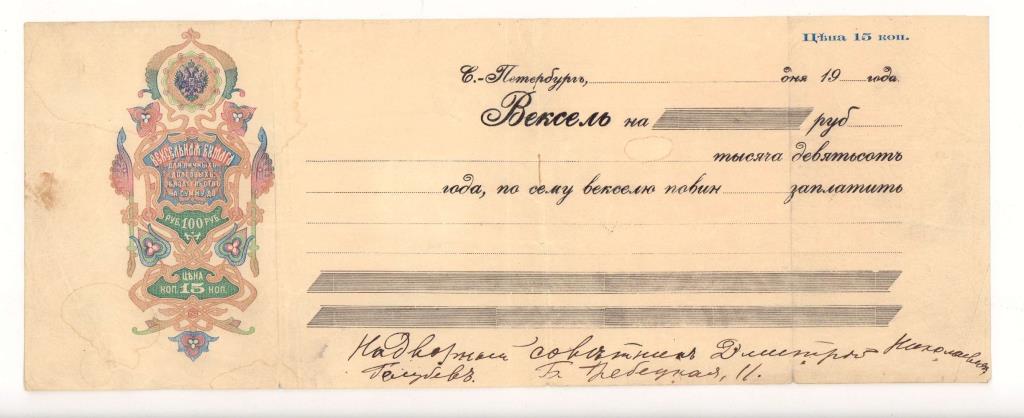 Цѣна 15 коп.
С.-Петербургъ, дня 19 года
Вексель на руб
тысяча девятьсотъ
года, по сему векселю повин заплатить
ВЕКСЕЛЬНАЯ БУМАГА
ДЛЯ ЛИЧНЫХЪ
ДОЛГОВЫХЪ
ОБЯЗАТЕЛЬСТВЪ
НА СУММУ ДО
РУБ. 100 РУБ.
ЦѢНА
КОП. 15 КОП.
Надворный совѣтникъ Дмитрій Николаевичъ
Голубевъ. Б. 11.